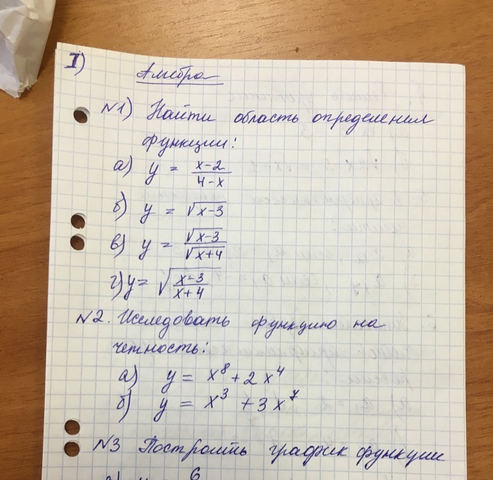 I)
Алгебра
N1) Найти область определения
функции:
а) y = x-2 / 4-x
б) y = √x-3
в) y = √x-3 / √x+4
г) y = √x-3 / x+4
N2. Исследовать функцию на
четность:
а) y = x⁸ + 2x⁴
б) y = x³ + 3x⁷
N3 Построить график функции
6